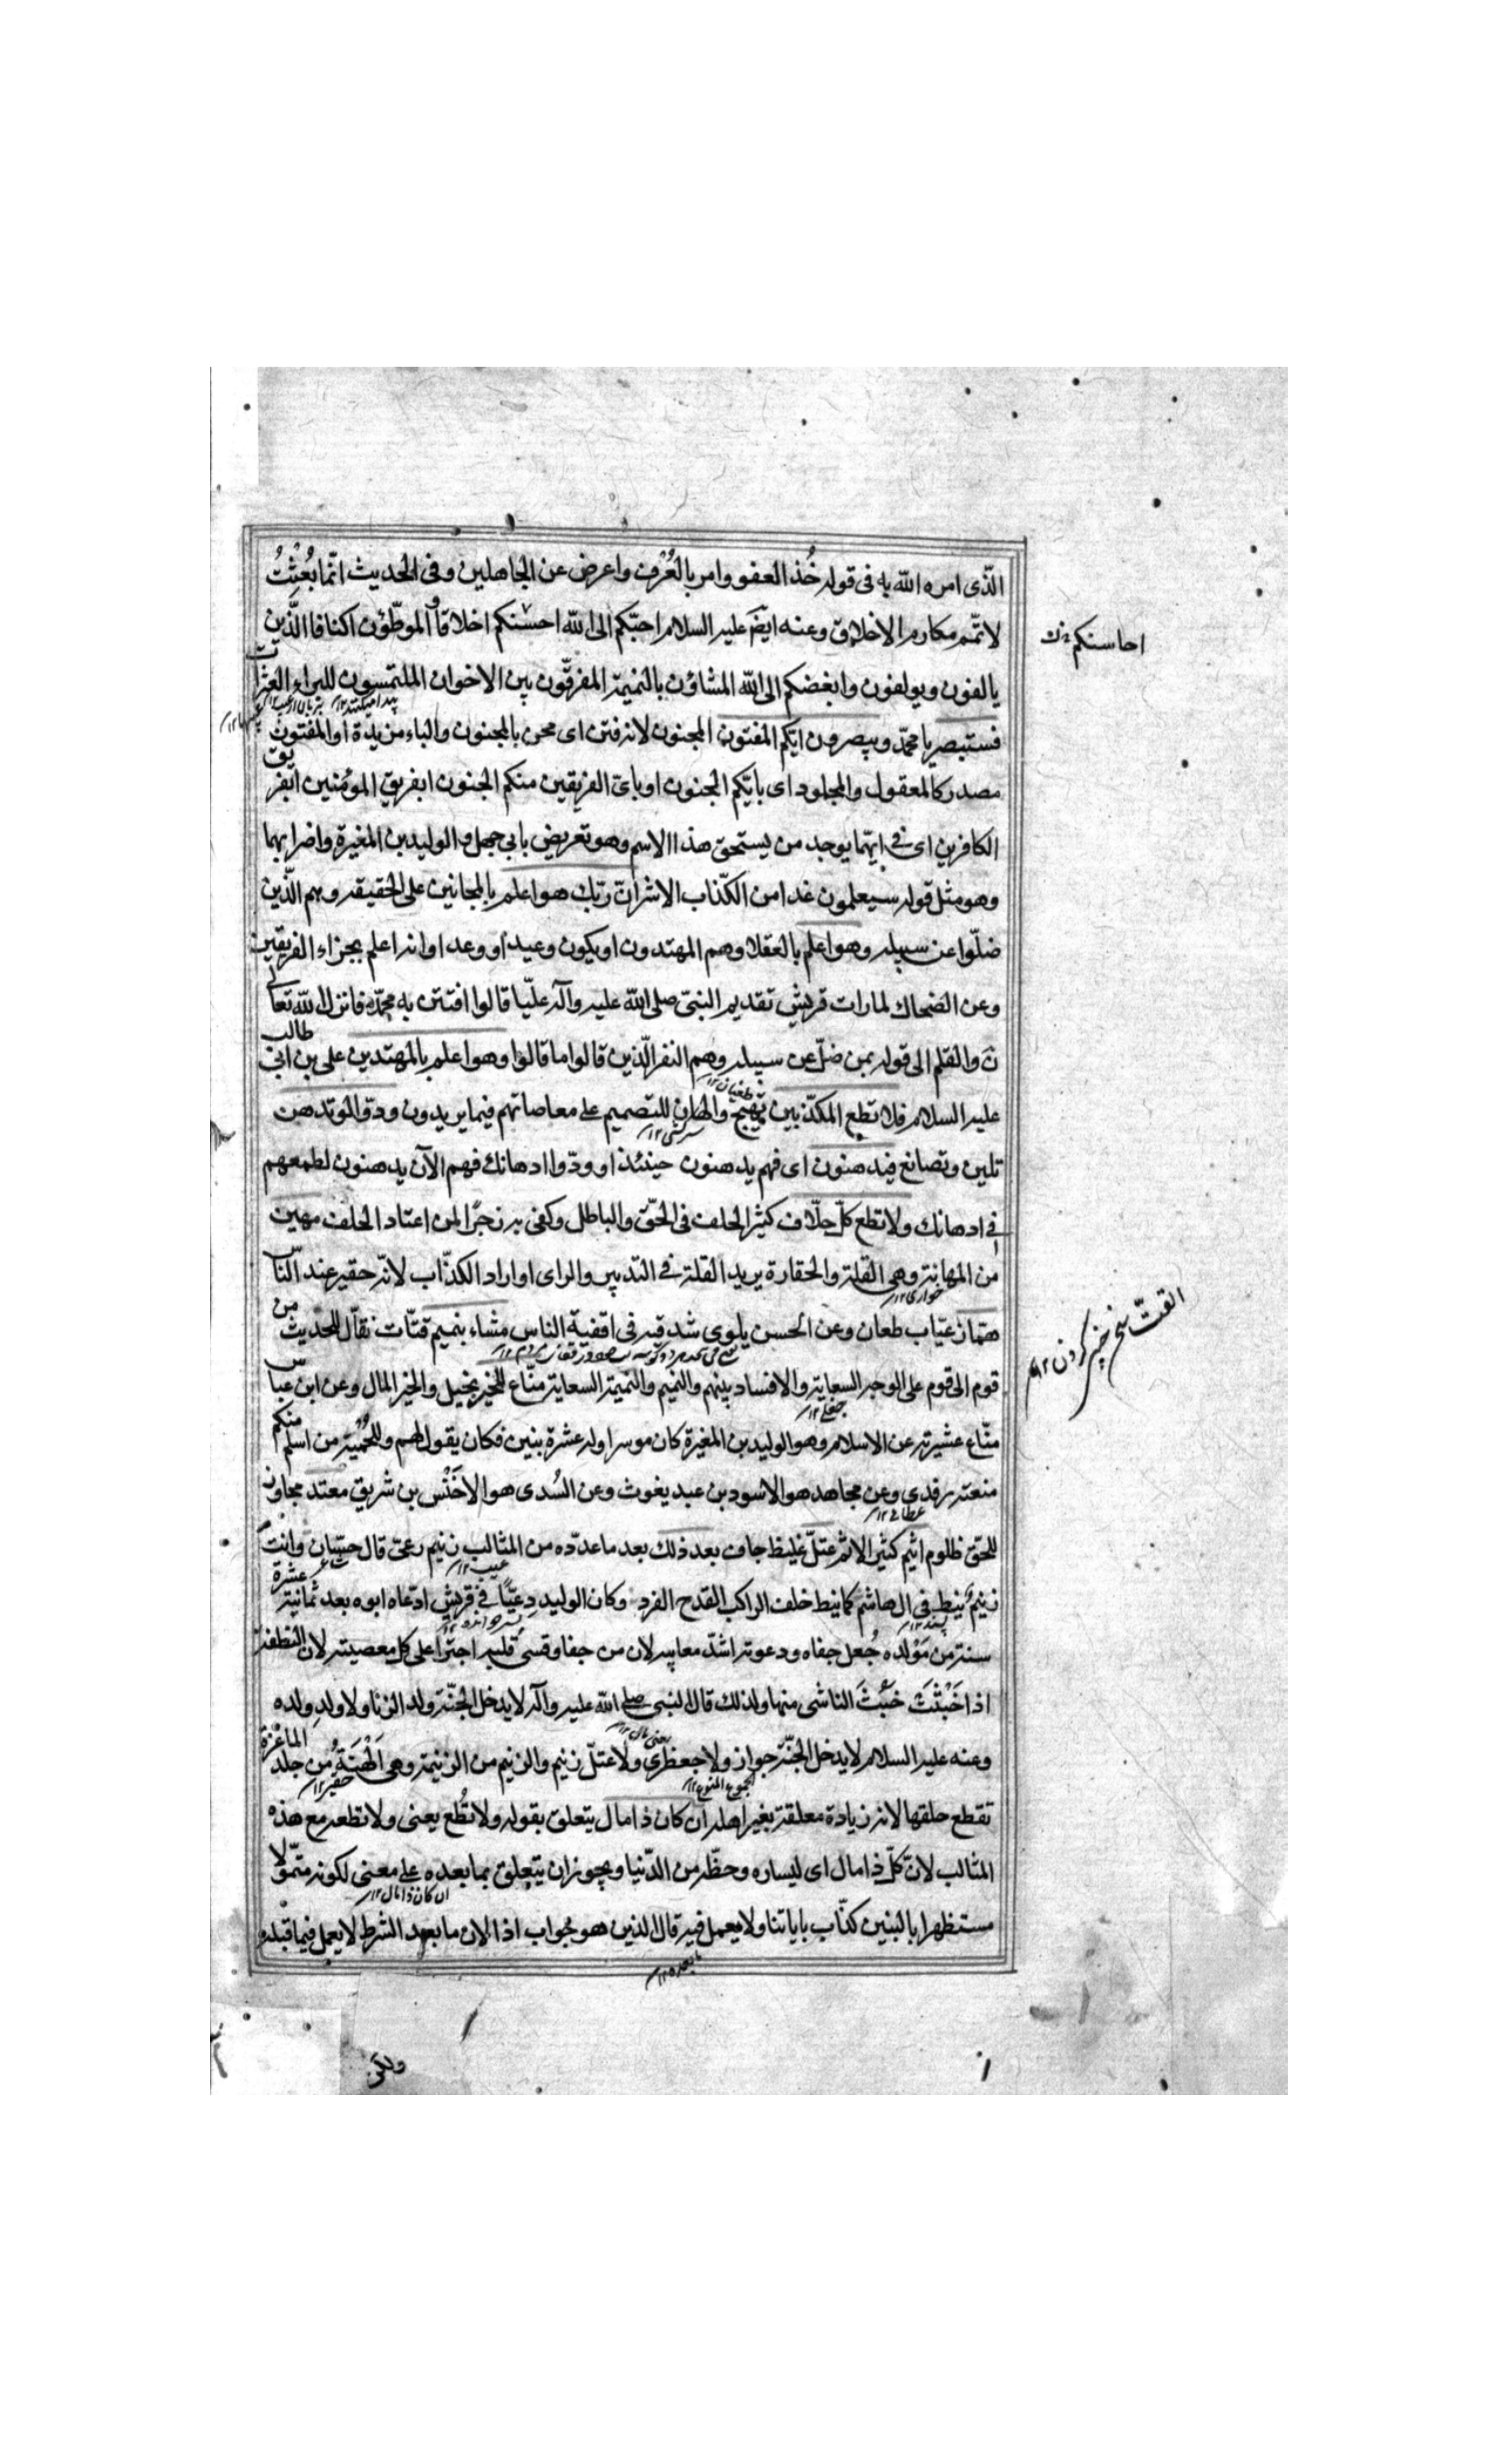 الّذى امره الله به فى قوله خُذ العفو وامر بالعُرْف واعرض عن الجاهلين وفى الحديث انّما بُعِثْتُ
لاتمّم مكارم الاخلاق وعنه ايضَ عليه السلام احبّكم الى الله احسنكم اخلاقا الموطّؤن اكنافا الّذين
احاسنكم
يالفون ويولفون وابغضكم الى الله المشاؤن بالنميمة المفرّقون بين الاخوان الملتمسون للبراء العثرات
فستبصر يا محمّد ويبصرون ايّكم المفتون المجنون لانه فتن اى محن بالمجنون والباء مزيدة او المفتون
مصدر كالمعقول والمجلود اى بايّكم الجنون او باىّ الفريقين منكم الجنون ابفريق المؤمنين ابفريق
الكافرين اى فى ايّهما يوجد من يستحق هذا الاسم وهو تعريض بابى جهل والوليد بن المغيرة واضرابهما
وهو مثل قوله سيعلمون غدا من الكذّاب الاشر انّ ربّك هو اعلم بالمجانين على الحقيقه وهم الّذين
ضلّوا عن سبيله وهو اعلم بالعقلا وهم المهتدون او يكون وعيدا ووعدا وانه اعلم بجزاء الفريقين
وعن الضحاك لما رات قريش تقديم النبىّ صلى الله عليه وآله عليّا قالوا افتتن به محمّد فانزل الله تعالى
نَ والقلم الى قوله بمن ضلّ عن سبيله وهم النفر الّذين قالوا ما قالوا وهو اعلم بالمهتدين على بن ابى طالب
طغيان ١٢
عليه السلام فلا تطع المكذّبين تهييج والهاب للتصميم على معاصاتهم فيما يريدون ودّوا لو تدهن
سركشى ١٢
تلين وتصانع فيدهنون اى فهم يدهنون حينئذ او ودّوا ادهانك فهم الآن يدهنون لطمعهم
فى ادهانك ولا تطع كلّ حلّاف كثير الحلف فى الحقّ والباطل وكفى به زجرًا لمن اعتاد الحلف مهين
من المهانة وهى القلة والحقارة يريد القلة فى التدبير والراى او اراد الكذّاب لانّه حقير عند النّاس
خوارى ١٢
همّاز عيّاب طعان وعن الحسن يلوى شدقيه فى اقفية الناس مشاء بنميم قتّات نقّال للحديث من
القتّ سخن چينى كردن ١٢
قوم الى قوم على الوجه السعاية والافساد بينهم والنميم والنميمة السعاية منّاع للخير بخيل والخير المال وعن ابن عبّاس
منّاع عشيرته عن الاسلام وهو الوليد بن المغيرة كان موسرا وله عشرة بنين فكان يقول لهم وللحميّة من اسلم منكم
منعته رفدى وعن مجاهد هو الاسود بن عبد يغوث وعن السُدى هو الاخنس بن شريق معتد مجاوز
عطاى ١٢
للحق ظلوم اثيم كثير الاثم عتلّ غليظ جاف بعد ذلك بعد ما عدّده من المثالب زنيم دعىّ قال حسّان وانت
عيب ١٢
زنيمٌ نيط فى ال هاشم كما نيط خلف الراكب القدح الفرد وكان الوليد دعيّا فى قريش ادّعاه ابوه بعد ثمانية عشرة
سنة من مَوْلده جُعل جفاه ودعوته اشدّ معايبه لان من جفا وقسى قلبه اجترا على كل معصيته لان النطفة
اذا خَبُثَتْ خَبُثَ الناشى منها ولذلك قال النبى صلى الله عليه وآله لا يدخل الجنّة ولد الزنا ولا ولد ولده
وعنه عليه السلام لا يدخل الجنّة جواز ولا جعظرى ولا عتلّ زنيم والزنيم من الزنيمة وهى الهَنَة من جلد الماعزة
الجموع المنوع ١٢
تقطع حلقها لانه زيادة معلقة بغير اهله ان كان ذا مال يتعلق بقوله ولا تُطع يعنى ولا تطعه مع هذه
المثالب لان كلّ ذا مال اى ليساره وحظّه من الدّنيا ويجوز ان يتعلق بما بعده على معنى لكونه متموّلا
ان كان ذا مال ١٢
مستظهرا بالبنين كذّاب باياتنا ولا يعمل فيه قال الذين هو جواب اذا لان ما بعد الشرط لا يعمل فيما قبله
ما بعده ١٢